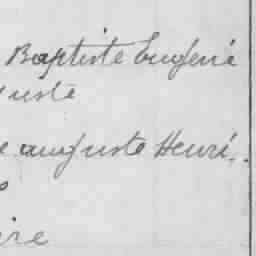 Baptiste Eugène
uste
e auguste Henri.
ire